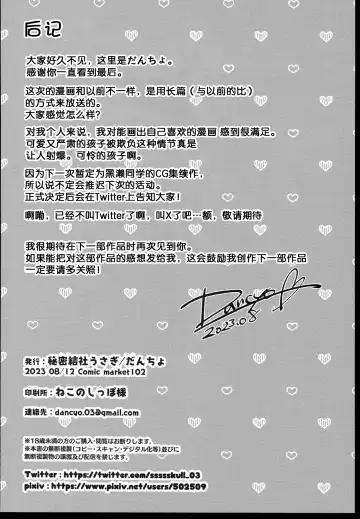 后记
大家好久不见，这里是だんちょ。
感谢你一直看到最后。
这次的漫画和以前不一样，是用长篇（与以前的比）
的方式来放送的。
大家感觉怎么样？
对我个人来说，我对能画出自己喜欢的漫画 感到很满足。
可爱又严肃的孩子被欺负这种情节真是
让人射爆。可怜的孩子啊。
因为下一次暂定为黑濑同学的CG集续作，
所以说不定会推迟下次的活动。
正式决定后会在Twitter上告知大家！
啊嘞，已经不叫Twitter了啊，叫X了吧…额，敬请期待
我很期待在下一部作品时再次见到你。
如果能把对这部作品的感想发给我，这会鼓励我创作下一部作品
一定要请多关照！
Dancyo
2023.08
発行：秘密結社うさぎ/だんちょ
2023 08/12 Comic market102
印刷所：ねこのしっぽ様
連絡先：dancyo.03@gmail.com
※18歳未満の方のご購入・閲覧はお断りします。
※本書の無断複製（コピー・スキャン・デジタル化等）並びに
無断複製物の譲渡及び配信を禁じます。
Twitter：https://twitter.com/sssskull_03
pixiv：https://www.pixiv.net/users/502509